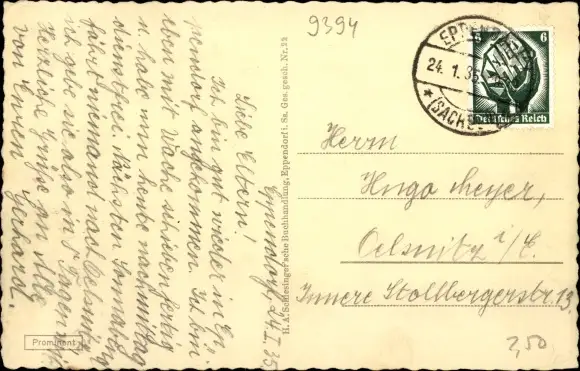 9394
EPPENDORF
24.1.35
(SACHSEN)
6 6
Deutsches Reich
Eppendorf 24.I.35
Liebe Eltern!
Ich bin gut wieder in Ep-
pendorf angekommen. Ich bin
eben mit Wache schieben fertig
u. habe nun heute nachmittag
dienstfrei. Nächsten Sonntag
fährt niemand nach Oelsnitz,
ich gebe sie also in
Herzliche Grüße an Alle
von Euren Gerhard.
H. A. Schlesinger'sche Buchhandlung, Eppendorf i. Sa. Ges. gesch. Nr. 22
Herrn
Hugo Meyer,
Oelsnitz i/E.
Innere Stollbergerstr. 13.
Prominent
2,50